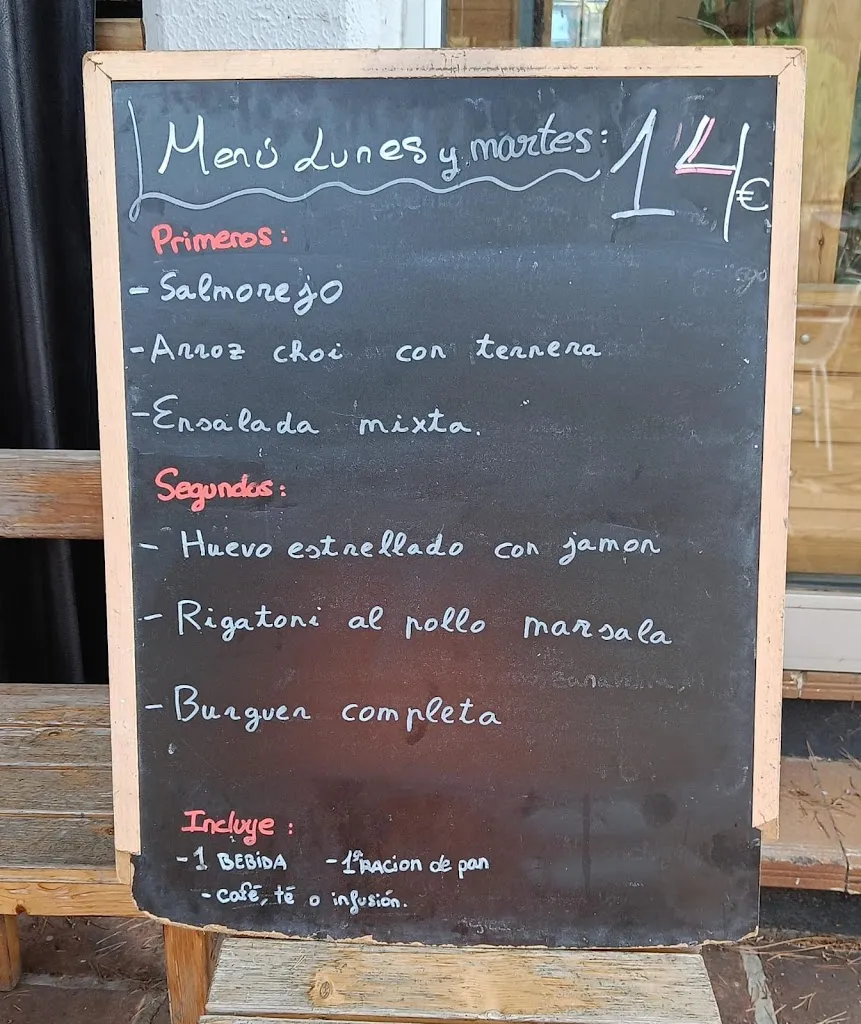 Menú Lunes y martes: 14€
Primeros:
- Salmorejo
- Arroz choi con ternera
- Ensalada mixta.
Segundos:
- Huevo estrellado con jamon
- Rigatoni al pollo marsala
- Burguer completa
Incluye:
- 1 BEBIDA - 1ª RACION de pan
- café, té o infusión.